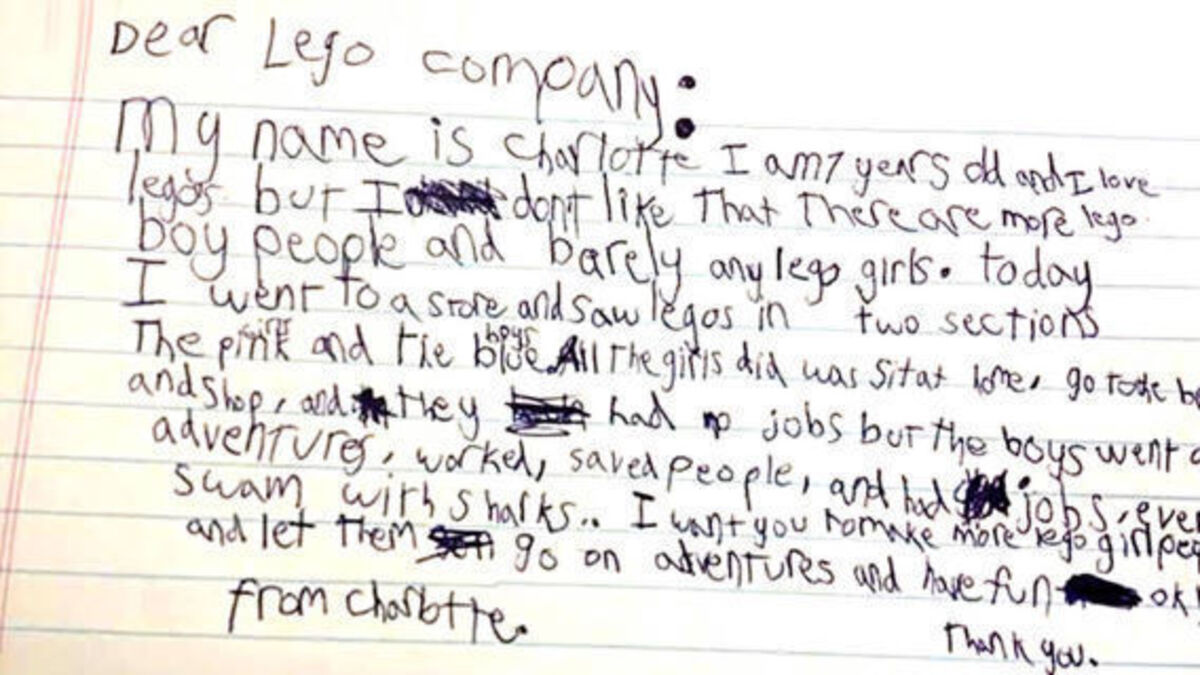 Dear Lego company:
My name is Charlotte I am 7 years old and I love
legos but I don't like That There are more lego
boy people and barely any lego girls. today
I went to a store and saw legos in two sections
girls boys
The pink and the blue. All The girls did was sit at home, go to the
and shop, and they had no jobs but the boys went
adventures, worked, saved people, and had jobs, even
swam with sharks.. I want you to make more lego girl
and let them go on adventures and have fun ok!
from Charlotte.
Thank you.